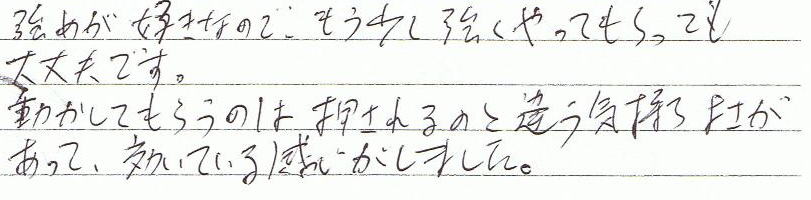 強めが好きなので、もう少し強くやってもらっても
大丈夫です。
動かしてもらうのは押されるのと違う気持ちよさが
あって、効いている感じがしました。